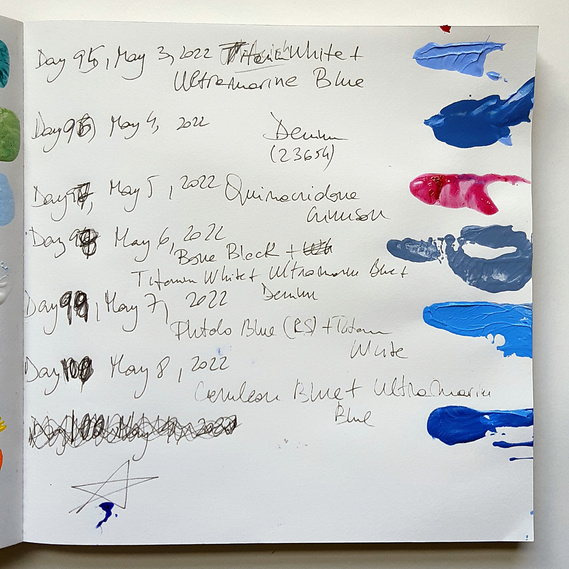 Day 95, May 3, 2022 Titanium White +
Ultramarine Blue
Day 96, May 4, 2022 Denim
(23654)
Day 97, May 5, 2022 Quinacridone
Crimson
Day 98, May 6, 2022
Bone Black +
Titanium White + Ultramarin Blue +
Day 99, May 7, 2022 Denim
Phtalo Blue (RS) + Titanium
White
Day 100 May 8, 2022
Cerulean Blue + Ultramarin
Blue
Day 100 May 9, 2022